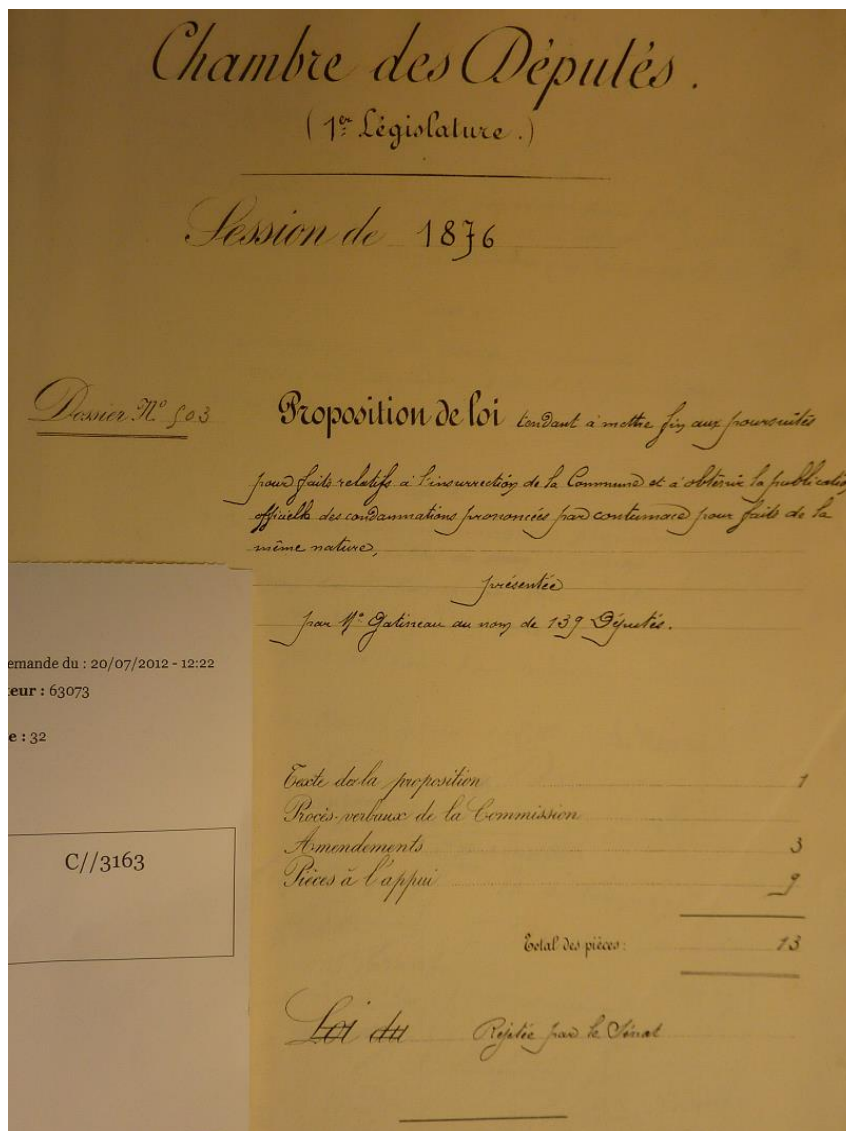 Chambre des Députés.
(1re Législature.)
Session de 1876
Dossier No 503
Proposition de loi tendant à mettre fin aux poursuites
pour faits relatifs à l'insurrection de la Commune et à obtenir la publication
officielle des condamnations prononcées par contumace pour faits de la
même nature,
présentée
par Mr. Gatineau au nom de 139 Députés.
emande du : 20/07/2012 - 12:22
eur : 63073
e : 32
C//3163
Texte de la proposition 1
Procès-verbaux de la Commission
Amendements 3
Pièces à l'appui 9
Total des pièces: 13
Loi du Rejetée par le Sénat